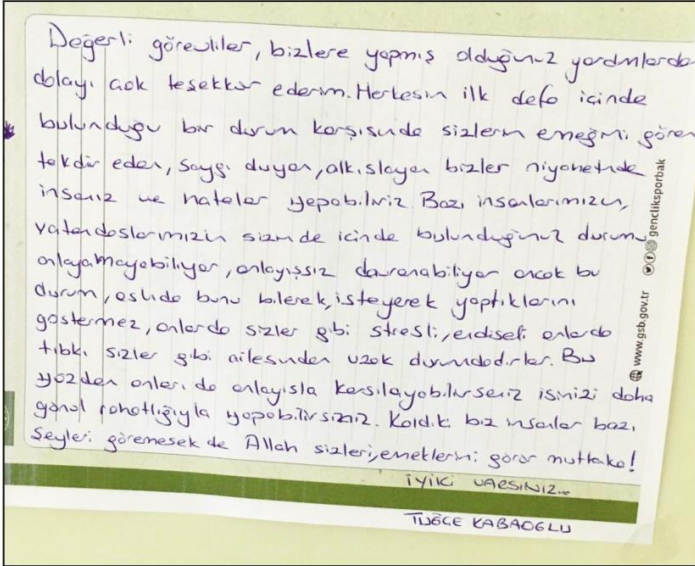 Değerli görevliler, bizlere yapmış olduğunuz yardımlarda
dolayı çok teşekkür ederim. Herkesin ilk defa içinde
bulunduğu bir durum karşısında sizlerin emeğini gören
takdir eden, saygı duyan, alkışlayan bizler niyanetinde
insanız ve hatalar yapabiliriz. Bazı insanlarımızın,
vatandaşlarımızın sizinde içinde bulunduğunuz durumu
anlayamayabiliyor, anlayışsız davranabiliyor ancak bu
durum, aslında bunu bilerek, isteyerek yaptıklarını
göstermez, onlarda sizler gibi stresli, endişeli onlarda
tıbkı sizler gibi ailesinden uzak durumdadırlar. Bu
yüzden onları da anlayışla karşılayabilirseniz işinizi daha
gönül rahatlığıyla yapabilirsiniz. Kaldıki biz insanlar bazı
şeyleri göremesek de Allah sizleri, emeklerini görür mutlaka!
İYİKİ VARSINIZ...
TUĞÇE KABAOĞLU
www.gsb.gov.tr gencliksporbak